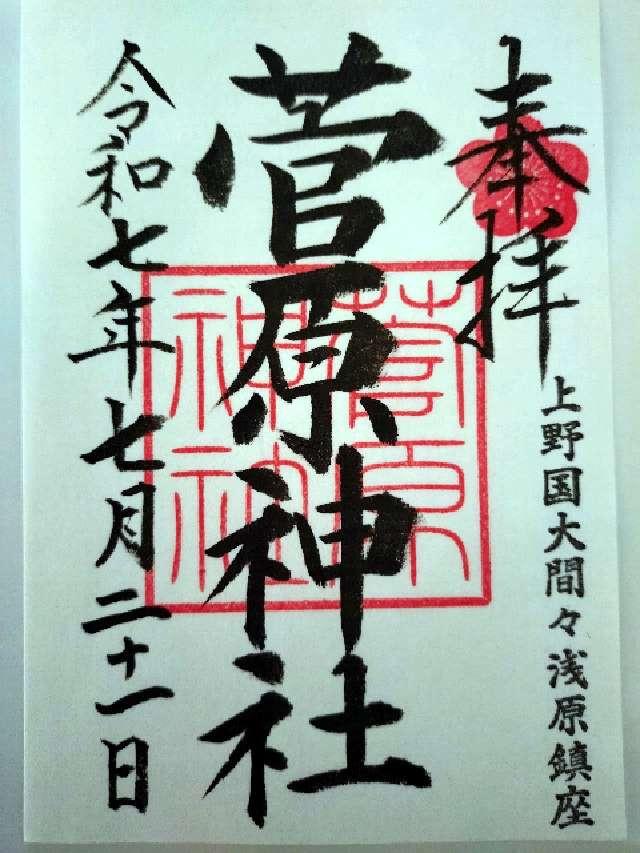 奉拝
上野国大間々浅原鎮座
菅原神社
菅原
神社
令和七年七月二十一日